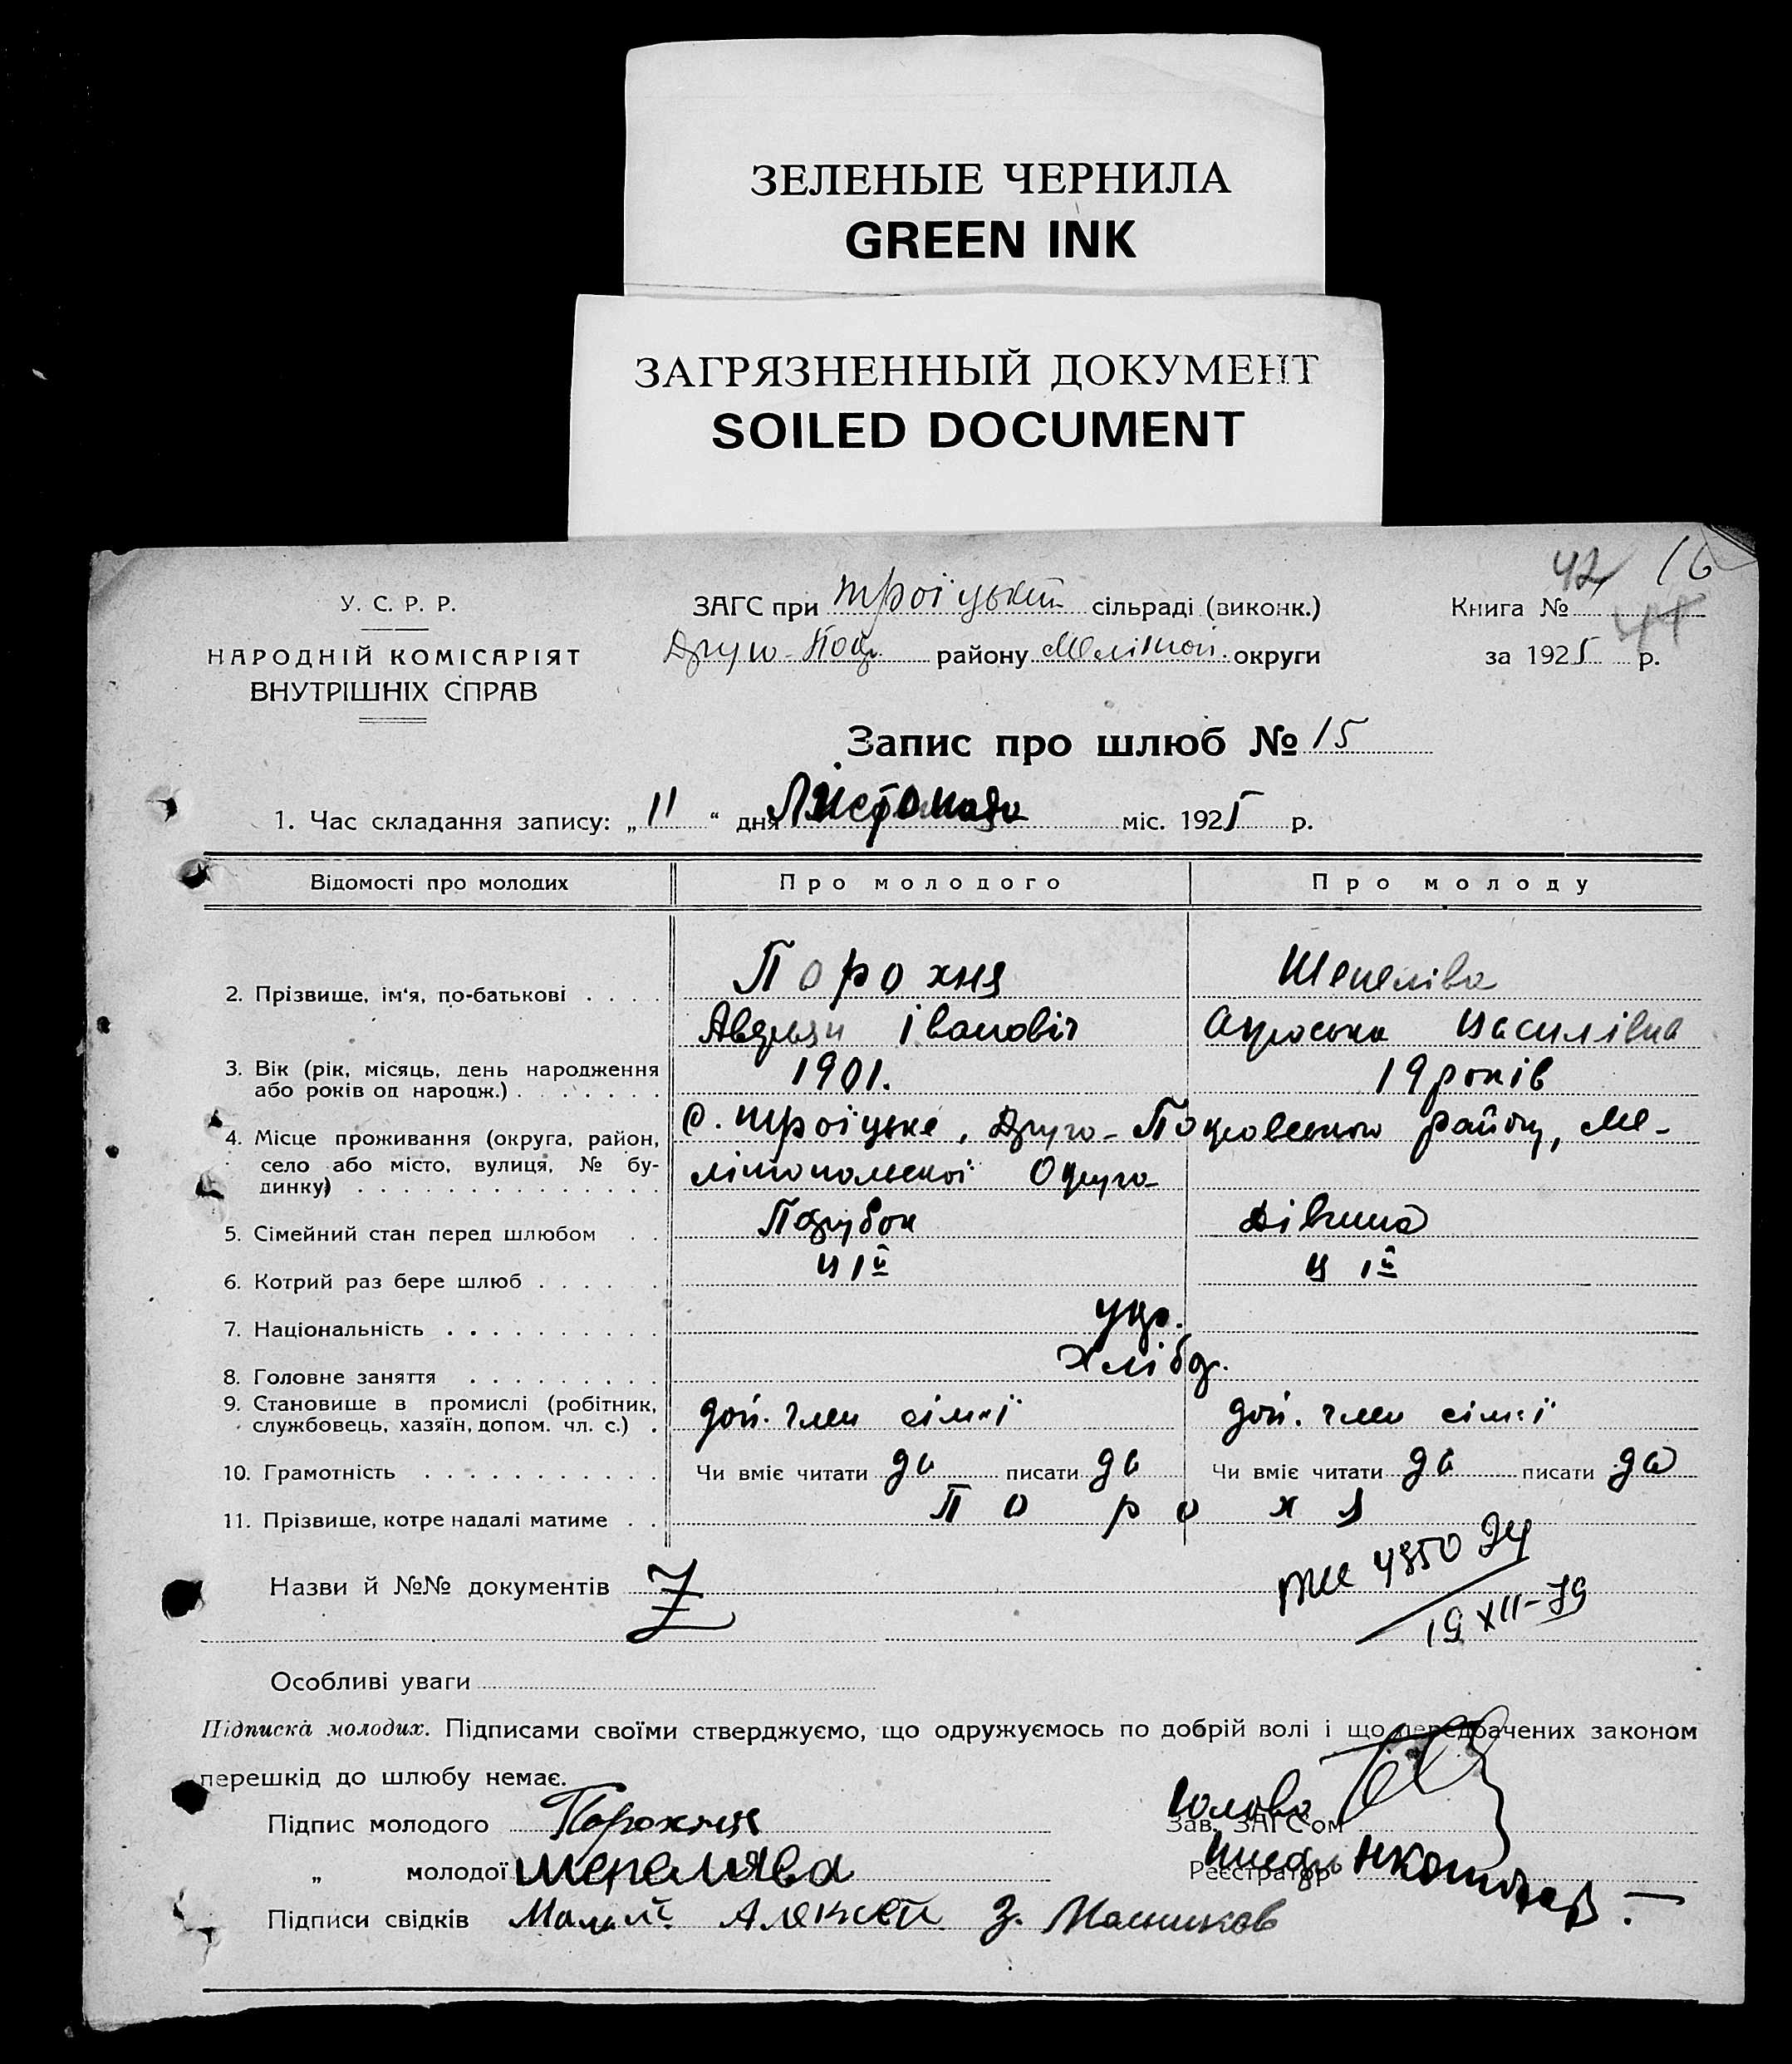 ЗЕЛЕНЫЕ ЧЕРНИЛА
GREEN INK
ЗАГРЯЗНЕННЫЙ ДОКУМЕНТ
SOILED DOCUMENT
42 16
У. С. Р. Р.
НАРОДНІЙ КОМІСАРІЯТ
ВНУТРІШНІХ СПРАВ
ЗАГС при Троїцькій сільраді (виконк.)
Друго-Покр. району Меліtoп. округи
Книга №
за 1925 р.
Запис про шлюб № 15
1. Час складання запису: „11“ дня Листопада міс. 1925 р.
Відомості про молодих Про молодого Про молоду
2. Прізвище, ім‘я, по-батькові . . . . Порохня Шепеліва
Іванович Василівна
3. Вік (рік, місяць, день народження або років од народж.) . . . . . . . 1901. 19 років
4. Місце проживання (округа, район, село або місто, вулиця, № будинку) . . . с. Троїцьке, Друго-Покровського району, Ме-
літопольскої Округа
5. Сімейний стан перед шлюбом . . Парубок Дівчина
6. Котрий раз бере шлюб . . . . . . И Iй И Iй
7. Національність . . . . . . . . . . укр.
8. Головне заняття . . . . . . . . . Хлібр.
9. Становище в промислі (робітник, службовець, хазяїн, допом. чл. с.) . доп. член сімї доп. член сімї
10. Грамотність . . . . . . . . . . . Чи вміє читати да писати да Чи вміє читати да писати да
11. Прізвище, котре надалі матиме . . Порохя
Назви й №№ документів Z
19 XII-79
Особливі уваги
Підписка молодих. Підписами своїми стверджуємо, що одружуємось по добрій волі і що передбачених законом
перешкід до шлюбу немає.
Підпис молодого Порохня Голова Зав. ЗАГС‘ом
„ молодої Шепелява Реєстратор
Підписи свідків Малий Алексей З. Масников